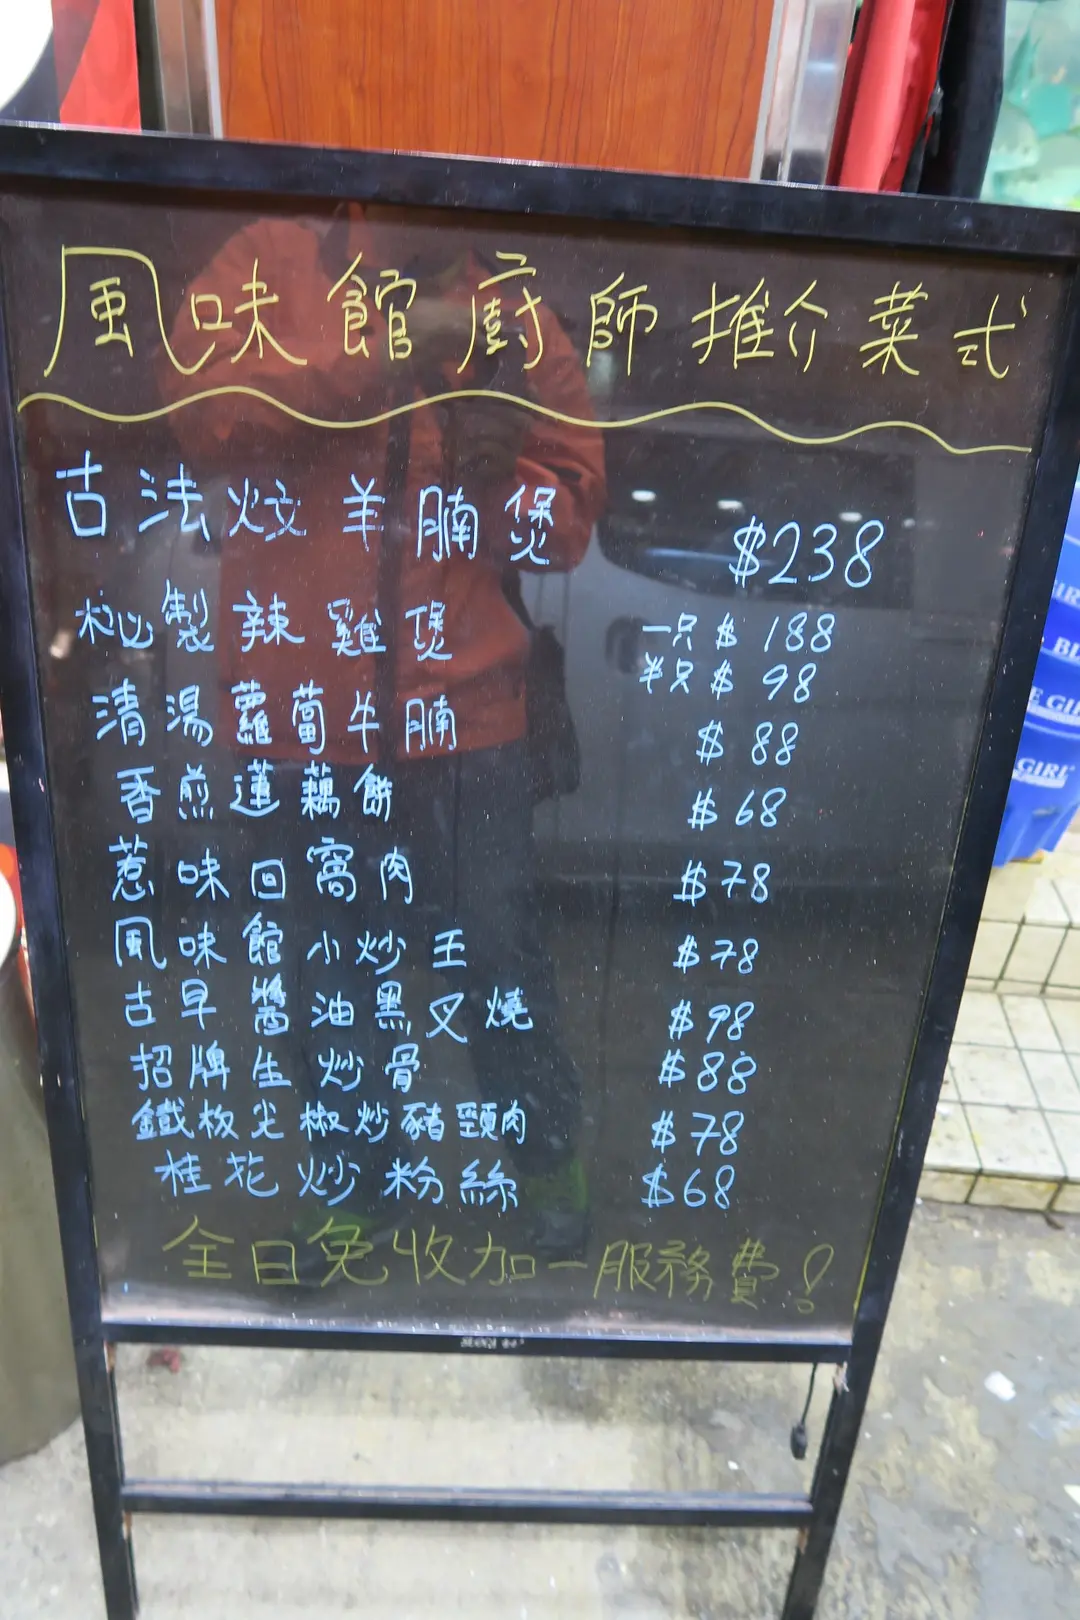 風味館廚師推介菜式
古法炆羊腩煲 $238
秘製辣雞煲 一只 $ 188
半只 $ 98
清湯蘿蔔牛腩 $ 88
香煎蓮藕餅 $ 68
惹味回窩肉 $ 78
風味館小炒王 $ 78
古早醬油黑叉燒 $ 98
招牌生炒骨 $ 88
鐵板尖椒炒豬頸肉 $ 78
桂花炒粉絲 $ 68
全日免收加一服務費!
BLUE GIRL
GIRL